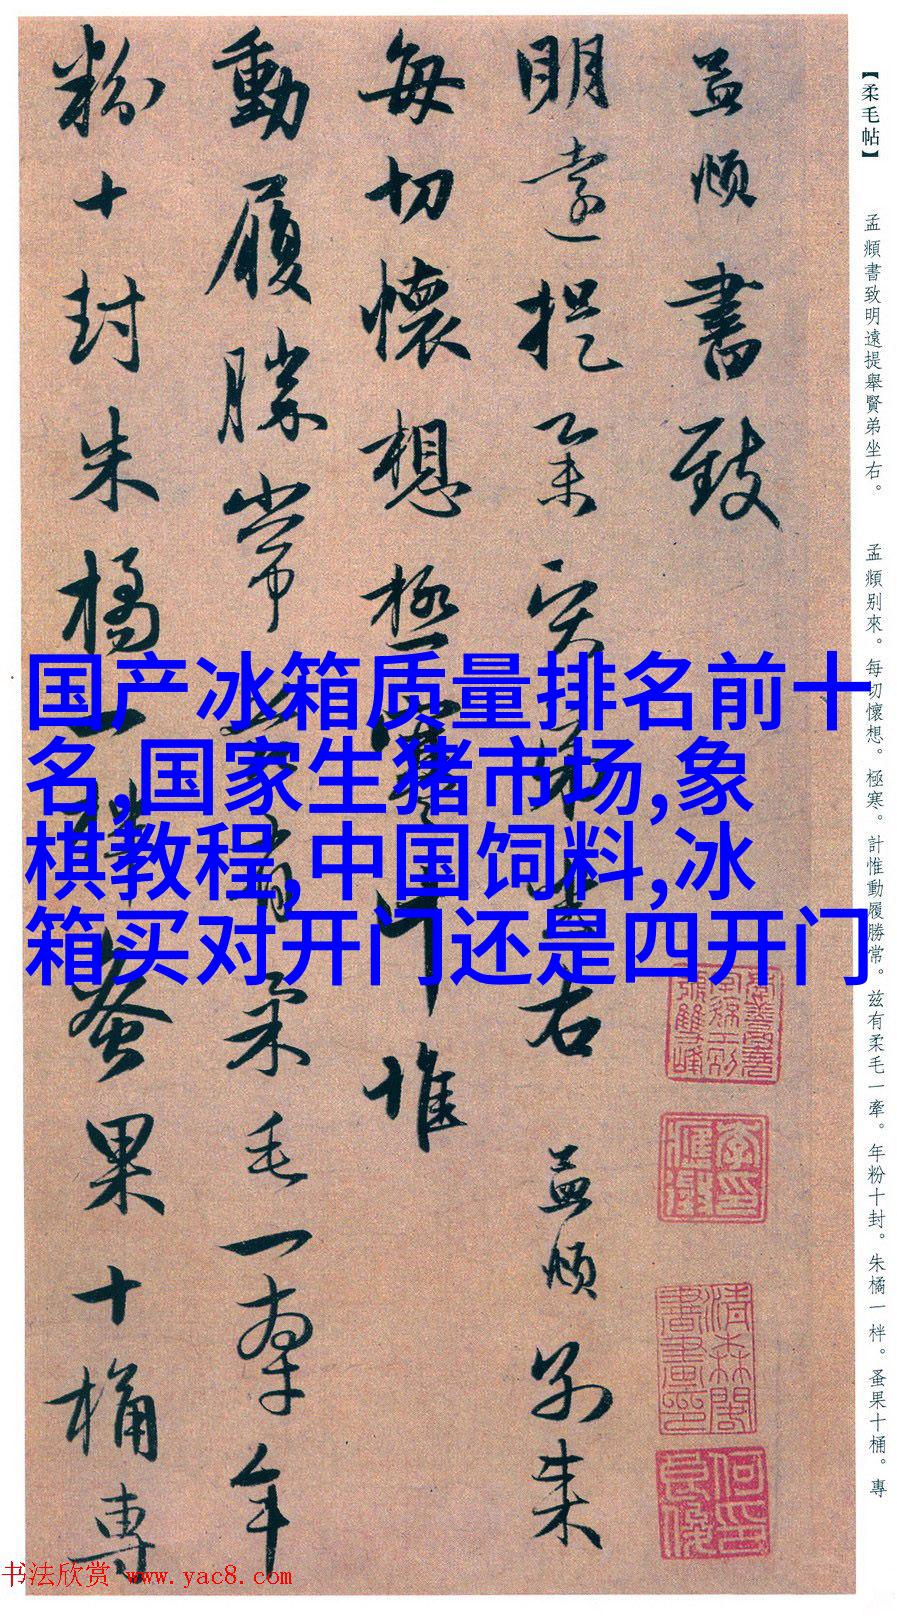 【柔毛帖】
孟頫書致明遠提舉賢弟坐右。
孟頫别來。每切懷想。極寒。計惟動履勝常。兹有柔毛一牽。年粉十封。朱橘一柈。蚤果十桶。專
孟頫書致
明遠提舉賢弟坐右 孟頫别來
每切懷想極寒計惟
動履勝常兹有柔毛一牽年
粉十封朱橘一柈蚤果十桶專
国产冰箱质量排名前十
名,国家生猪市场,象
棋教程,中国饲料,冰
箱买对开门还是四开门
书法欣赏 www.yac8.com